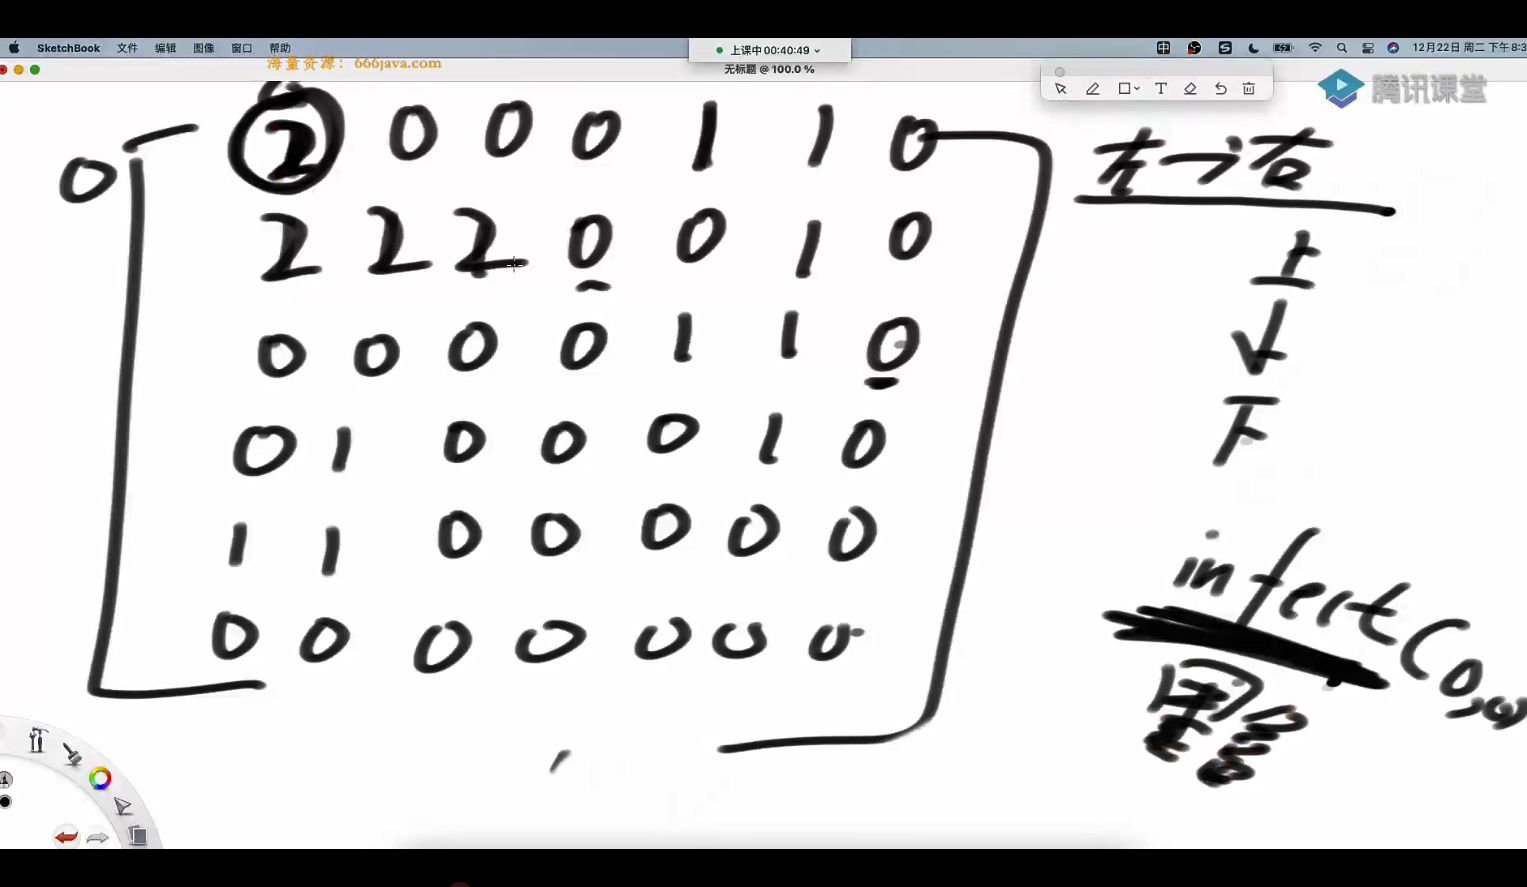 SketchBook 文件 编辑 图像 窗口 帮助
上课中 00:40:49
中 S 12月22日 周二 下午8:3
海量资源：666java.com
无标题 @ 100.0 %
T
腾讯课堂
2 0 0 0 1 1 0
0
2 2 2 0 0 1 0
0 0 0 0 1 1 0
0 1 0 0 0 1 0
1 1 0 0 0 0 0
0 0 0 0 0 0 0
左→右
上
↓
下
infect(0,0)